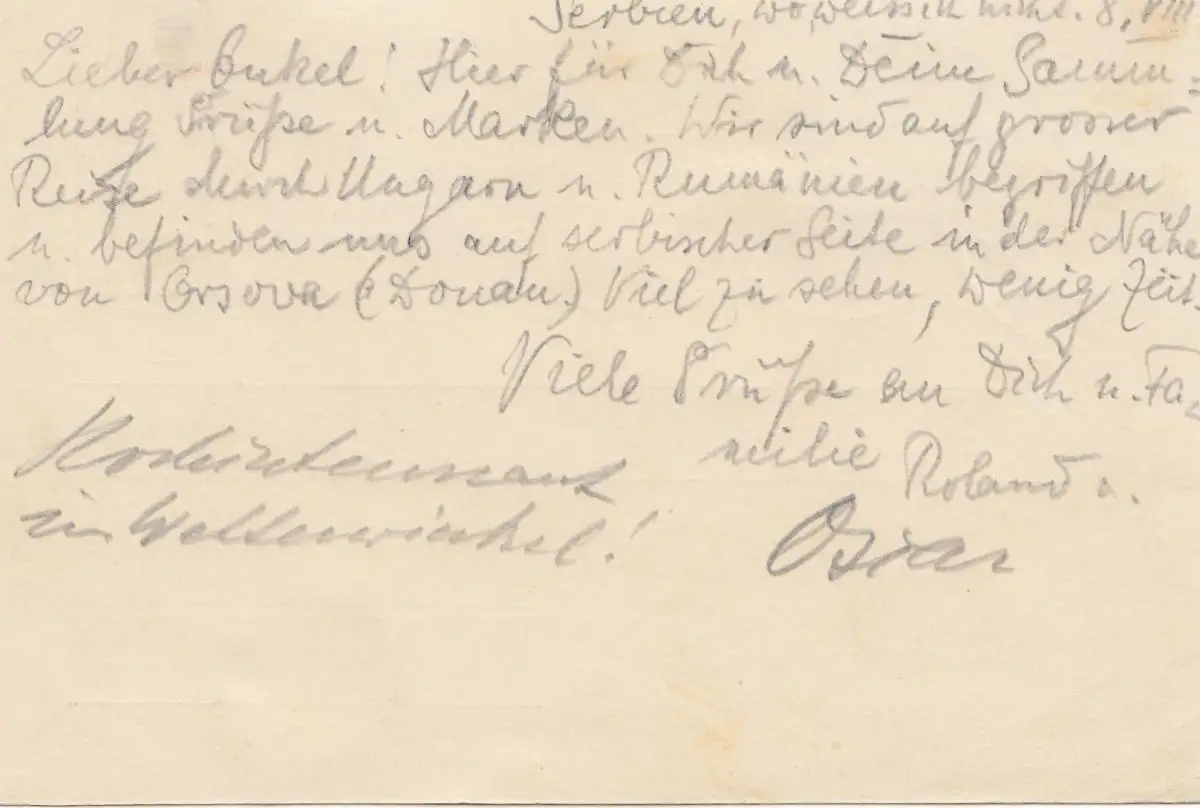 Serbien, wo weiss ich nicht. 8. VIII
Lieber Onkel! Hier für Dich u. Deine Samm-
lung Grüße u. Marken. Wir sind auf grosser
Reise durch Ungarn u. Rumänien begriffen
u. befinden uns auf serbischer Seite in der Nähe
von Orsova (Donau.) Viel zu sehen, wenig Zeit.
Viele Grüße an Dich u. Fa-
milie Roland u.
im Wetterwinkel! Oskar